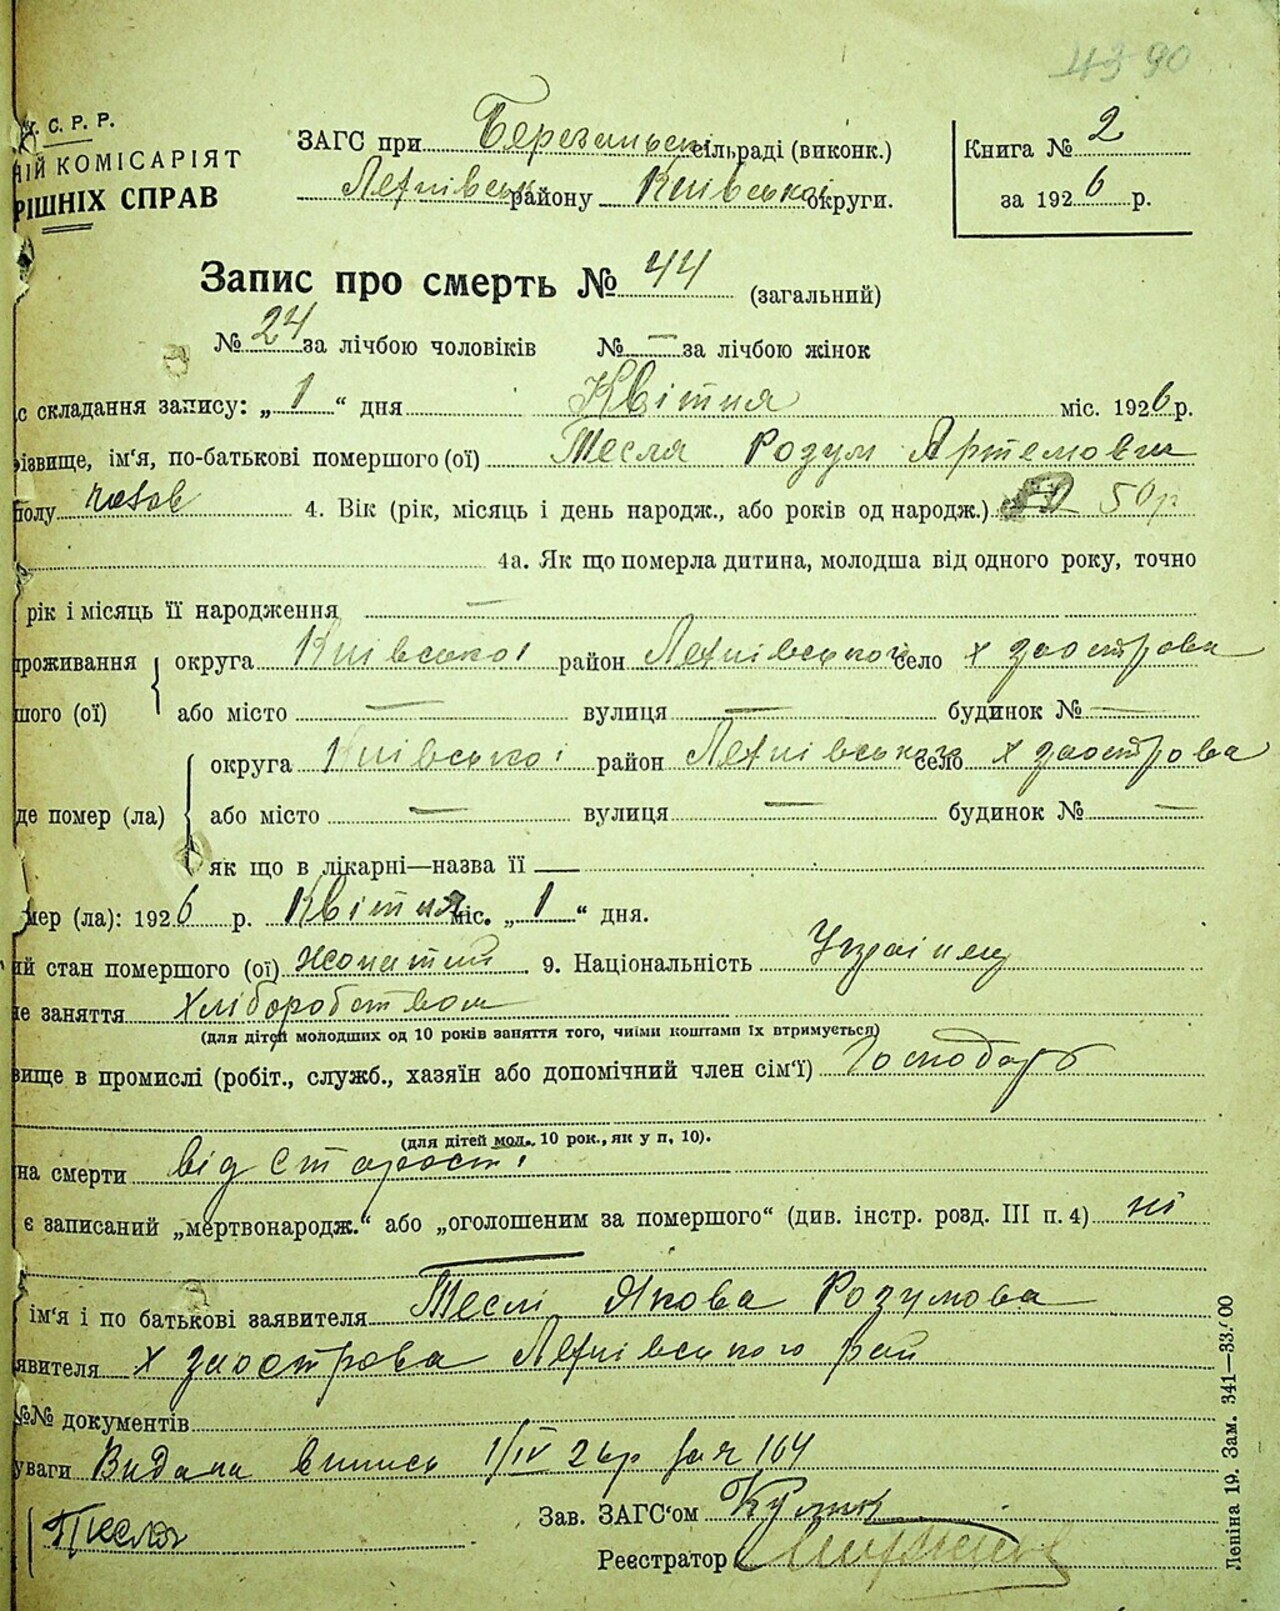 43 90
У. С. Р. Р.
НІЙ КОМІСАРІЯТ
РІШНІХ СПРАВ
ЗАГС при Березанськ сільраді (виконк.)
району Київської округи.
Книга № 2
за 1926 р.
Запис про смерть № 44 (загальний)
№ 24 за лічбою чоловіків № — за лічбою жінок
с складання запису: „1“ дня Квітня міс. 1926 р.
різвище, ім'я, по-батькові помершого (ої) Тесля Розум Артемович
полу чолов 4. Вік (рік, місяць і день народж., або років од народж.) 50 50 р.
4а. Як що померла дитина, молодша від одного року, точно
рік і місяць її народження —
проживання округа Київської район село х заострова
шого (ої) або місто — вулиця — будинок № —
округа Київської район село х заострова
де помер (ла) або місто — вулиця — будинок № —
як що в лікарні—назва її —
мер (ла): 1926 р. Квітня міс. „1“ дня.
ий стан помершого (ої) жонатий 9. Національність Українец
не заняття хліборобством
(для дітей молодших од 10 років заняття того, чиїми коштами їх втримується)
вище в промислі (робіт., служб., хазяїн або допомічний член сім'ї) Господарь
(для дітей мол. 10 рок., як у п, 10).
на смерти від старості
є записаний „мертвонародж.“ або „оголошеним за помершого“ (див. інстр. розд. III п. 4) ні
ім'я і по батькові заявителя Теслі Якова Розумова
явителя х заострова рай
№№ документів
уваги Видана випись 1/IV 26р за № 104
Тесля
Зав. ЗАГС'ом
Реєстратор
Леніна 19. Зам. 341—33.000